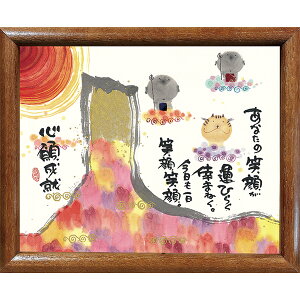 あなたの笑顔が
運ひらく
倖まねく。
今日も一日
笑顔笑顔。
心願成就